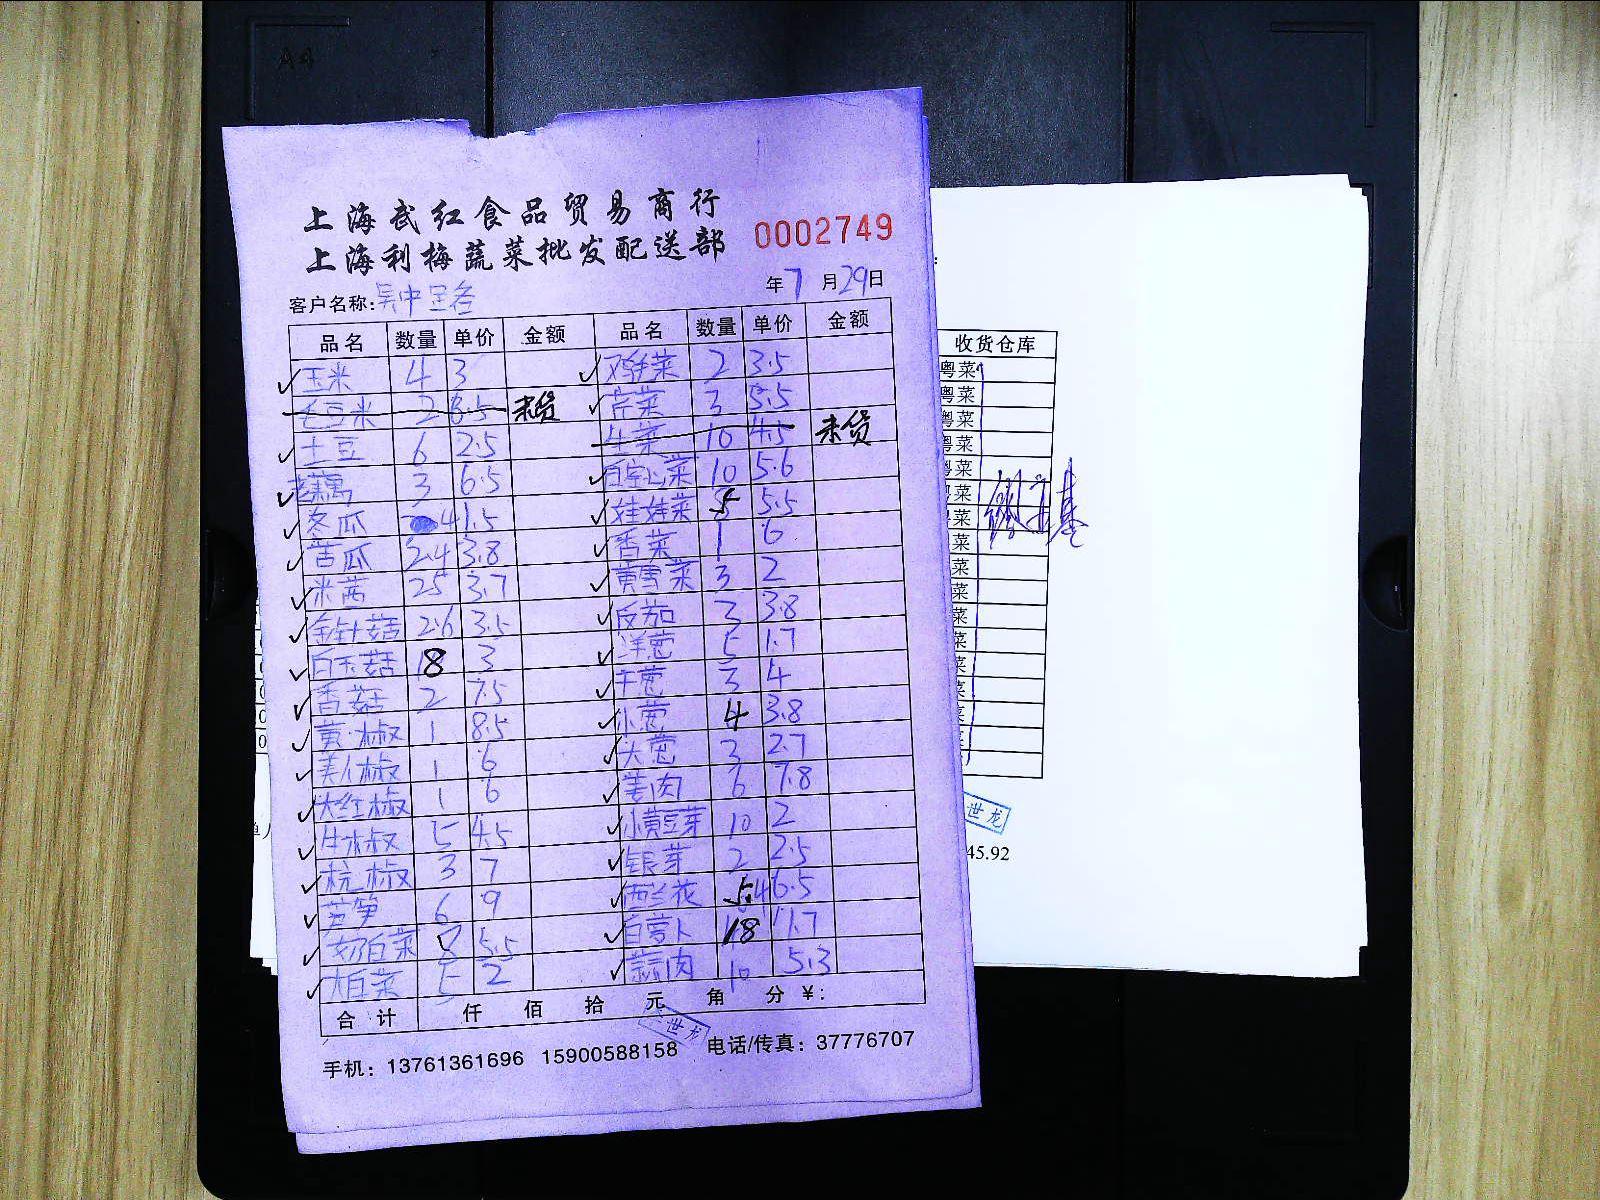 A4
上海武红食品贸易商行
上海利梅蔬菜批发配送部
0002749
年7月29日
客户名称:吴中
品名 数量 单价 金额 品名 数量 单价 金额
玉米 4 3 鸡毛菜 2 3.5
毛豆米 2 8.5 未货 芹菜 3 5.5
土豆 6 2.5 生菜 10 4.5 未货
老藕 3 6.5 10 5.6
冬瓜 4 1.5 娃娃菜 5.5
苦瓜 2.4 3.8 香菜 1 6
米茜 25 3.7 黄雪菜 3 2
金针菇 2.6 3.5 反茄 3 3.8
白玉菇 18 3 洋葱 5 1.7
香菇 2 7.5 干葱 3 4
黄椒 1 8.5 小葱 4 3.8
美人椒 1 6 大葱 3 2.7
大红椒 1 6 姜肉 6 7.8
牛椒 5 4.5 小黄豆芽 10 2
杭椒 3 7 银芽 2 2.5
莴笋 6 9 西兰花 5.4 6.5
奶白菜 8 5.5 白萝卜 18 1.7
大白菜 5 2 蒜肉 10 5.3
合计 仟 佰 拾 元 角 分 ¥:
世龙
手机: 13761361696 15900588158 电话/传真: 37776707
收货仓库
粤菜
粤菜
粤菜
粤菜
粤菜
菜
菜
菜
菜
菜
菜
菜
菜
菜
菜
世龙
45.92